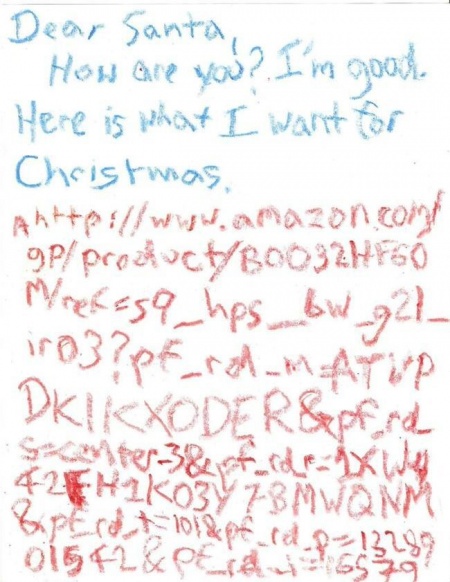 Dear Santa,
How are you? I'm good.
Here is what I want for
Christmas.
Ahttp://www.amazon.com/
gp/product/B0032HF60
M/ref=s9_hps_bw_g21_
ir03?pf_rd_m=ATVP
DKIKX0DER&pf_rd_
s=center-3&pf_rd_r=1XWy
42FH1K03Y7BMWQNM
&pf_rd_t=101&pf_rd_p=13289
01542&pf_rd_i=16579